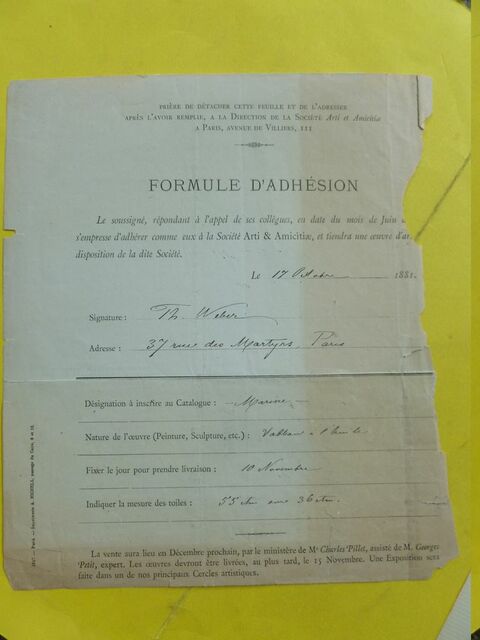 PRIÈRE DE DÉTACHER CETTE FEUILLE ET DE L'ADRESSER
APRÈS L'AVOIR REMPLIE, A LA DIRECTION DE LA SOCIÉTÉ Arti et Amicitiæ
A PARIS, AVENUE DE VILLIERS, 111
FORMULE D'ADHÉSION
Le soussigné, répondant à l'appel de ses collègues, en date du mois de Juin
s'empresse d'adhérer comme eux à la Société Arti & Amicitiæ, et tiendra une œuvre d'ar
disposition de la dite Société.
Le 17 Octobre 1881.
Signature : Th. Weber
Adresse : 37 rue des Martyrs, Paris
Désignation à inscrire au Catalogue : Marine
Nature de l'œuvre (Peinture, Sculpture, etc.) : Tableau à l'huile
Fixer le jour pour prendre livraison : 10 Novembre
Indiquer la mesure des toiles : 55 ctm sur 36 ctm.
La vente aura lieu en Décembre prochain, par le ministère de Mᵉ Charles Pillet, assisté de M. Georges
Petit, expert. Les œuvres devront être livrées, au plus tard, le 15 Novembre. Une Exposition sera
faite dans un de nos principaux Cercles artistiques.